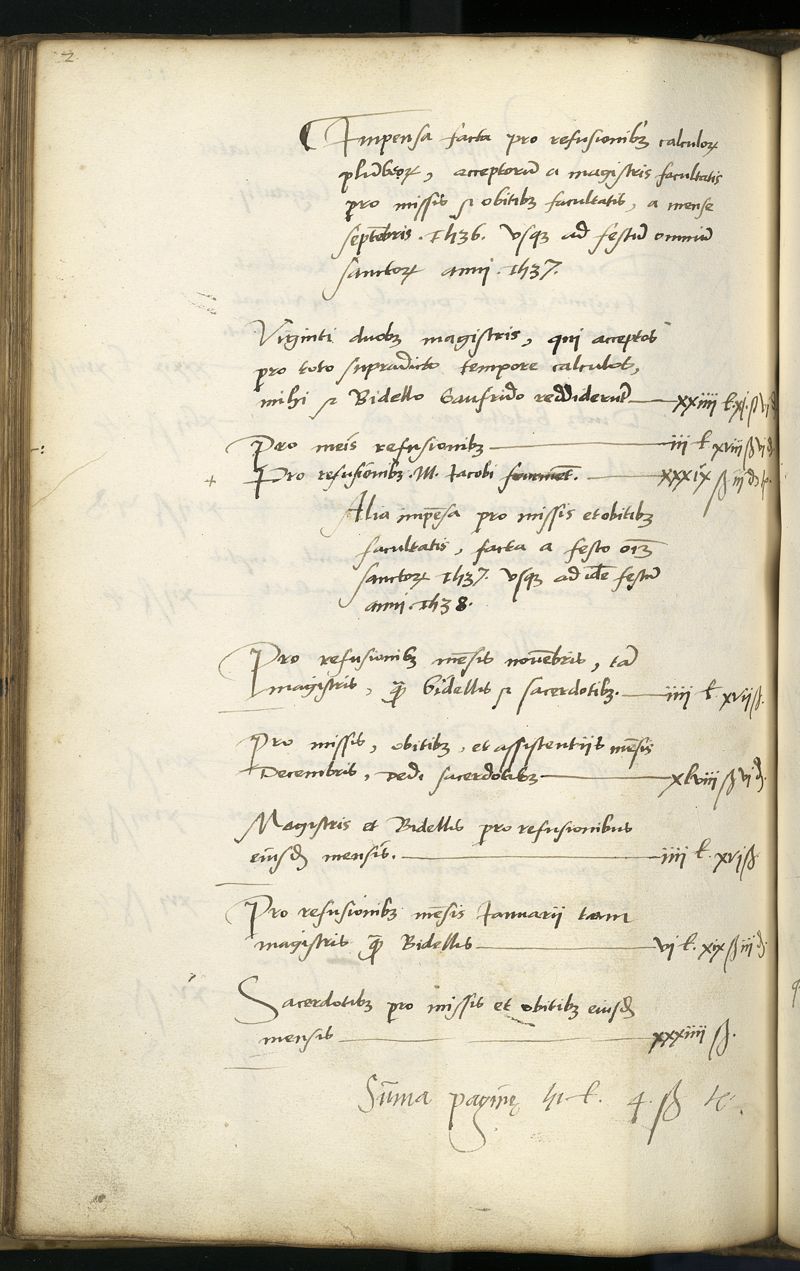 2
Impensa facta pro refusionibꝫ calculoꝝ
plūbeoꝝ, acceptorū a magistris facultatis
pro missis et obitibꝫ facultatis, a mense
septēbris .1536. vsqꝫ ad festū omniū
sanctoꝝ anni .1537.
Viginti duobꝫ magistris, qui acceptos
pro toto supradicto tempore calculos,
mihi et Bidello Gaufrido reddiderūt xxiiii l. xi. ß vi d
Pro meis refusionibꝫ iii l xviii ß vi d
+ Pro refusiōnibꝫ .M. Iacobi xxxix ß iii d
Alia impēsa pro missis et obitibꝫ
facultatis, facta a festo oīm
sanctoꝝ 1537. vsqꝫ ad idē festū
anni .1538.
Pro refusionibꝫ mēsis nouēbris, tā
magistris, quā bidellis et sacerdotibꝫ. iiii l xvii ß.
Pro missis, obitibꝫ, et assistentiis mēsis
Decembris, dedi sacerdotibꝫ xlviii ß vi d.
Magistris et Bidellis pro refusionibus
eiusd mensis. iiii l. xvi ß
Pro refusionibꝫ mēsis Ianuarii tam
magistris quā Bidellis vi l. xix ß iii d.
Sacerdotibꝫ pro missis et obitibꝫ eiusd
mensis xxxiiii ß.
Sūma paginę 51 l. 4. ß